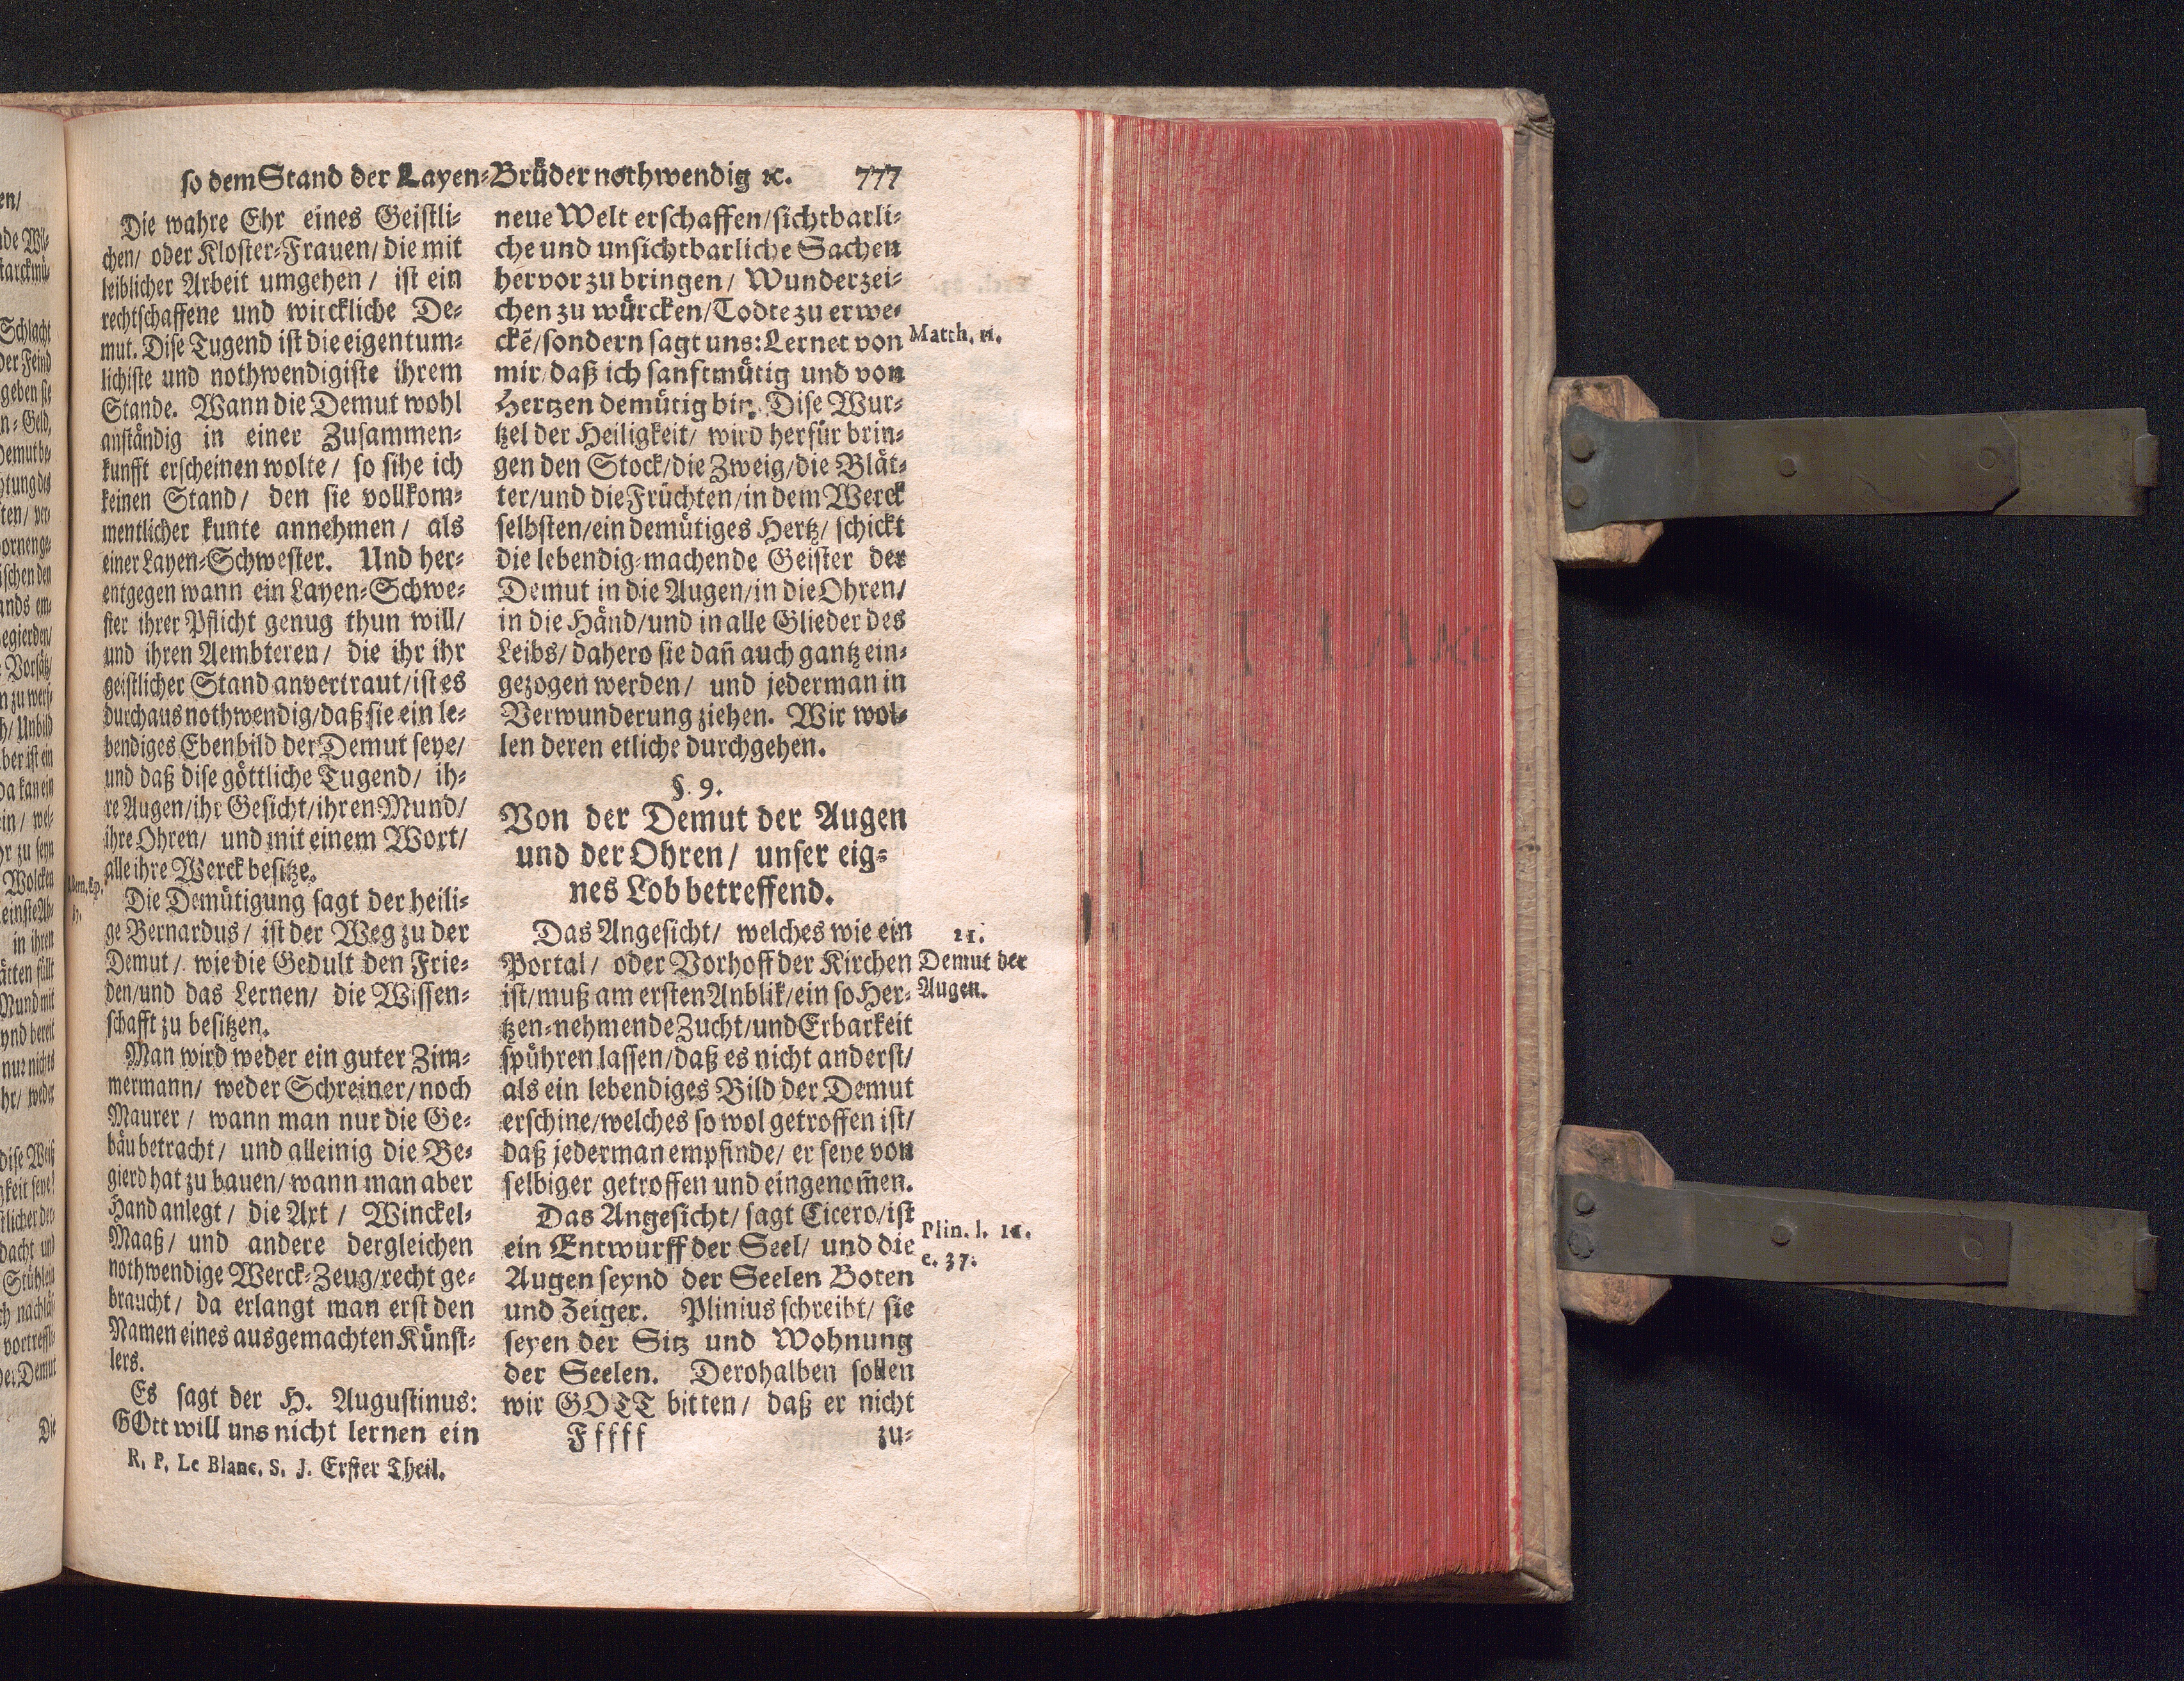 so dem Stand der Layen-Brüder nothwendig ꝛc. 777
Die wahre Ehr eines Geistli-
chen/ oder Kloster-Frauen/ die mit
leiblicher Arbeit umgehen / ist ein
rechtschaffene und wirckliche De-
mut. Dise Tugend ist die eigentum-
lichiste und nothwendigiste ihrem
Stande. Wann die Demut wohl
anständig in einer Zusammen-
kunfft erscheinen wolte / so sihe ich
keinen Stand / den sie vollkom-
mentlicher kunte annehmen / als
einer Layen-Schwester. Und her-
entgegen wann ein Layen-Schwe-
ster ihrer Pflicht genug thun will/
und ihren Aembteren / die ihr ihr
geistlicher Stand anvertraut/ist es
durchaus nothwendig/daß sie ein le-
bendiges Ebenbild der Demut seye/
und daß dise göttliche Tugend / ih-
re Augen/ihr Gesicht/ihren Mund/
ihre Ohren / und mit einem Wort/
alle ihre Werck besitze.
Die Demütigung sagt der heili-
ge Bernardus / ist der Weg zu der
Demut / wie die Gedult den Frie-
den/und das Lernen / die Wissen-
schafft zu besitzen.
Man wird weder ein guter Zim-
mermann/ weder Schreiner/noch
Maurer / wann man nur die Ge-
bäu betracht/ und alleinig die Be-
gierd hat zu bauen/wann man aber
Hand anlegt / die Axt / Winckel-
Maaß / und andere dergleichen
nothwendige Werck-Zeug/recht ge-
braucht / da erlangt man erst den
Namen eines ausgemachten Künst-
lers.
Es sagt der H. Augustinus:
GOtt will uns nicht lernen ein
R. P. Le Blanc. S. J. Erster Theil.
neue Welt erschaffen/sichtbarli-
che und unsichtbarliche Sachen
hervor zu bringen/ Wunderzei-
chen zu würcken/Todte zu erwe-
ckẽ/sondern sagt uns: Lernet von
Matth. 11.
mir/daß ich sanftmütig und von
Hertzen demütig bin. Dise Wur-
tzel der Heiligkeit/ wird herfür brin-
gen den Stock/die Zweig/die Blät-
ter/und die Früchten/in dem Werck
selbsten/ein demütiges Hertz/ schickt
die lebendig-machende Geister der
Demut in die Augen/in die Ohren/
in die Händ/und in alle Glieder des
Leibs/dahero sie dañ auch gantz ein-
gezogen werden/ und jederman in
Verwunderung ziehen. Wir wol-
len deren etliche durchgehen.
§. 9.
Von der Demut der Augen
und der Ohren / unser eig-
nes Lob betreffend.
Das Angesicht/ welches wie ein
21.
Portal/ oder Vorhoff der Kirchen
Demut der
ist/muß am ersten Anblik/ein so Her-
Augen.
tzen-nehmende Zucht/und Erbarkeit
spühren lassen/daß es nicht anderst/
als ein lebendiges Bild der Demut
erschine/welches so wol getroffen ist/
daß jederman empfinde/ er seye von
selbiger getroffen und eingenom̃en.
Das Angesicht/ sagt Cicero/ist
ein Entwurff der Seel/ und die
Plin. l. 11.
c. 37.
Augen seynd der Seelen Boten
und Zeiger. Plinius schreibt/ sie
seyen der Sitz und Wohnung
der Seelen. Derohalben sollen
wir GOTT bitten/ daß er nicht
Fffff zu-